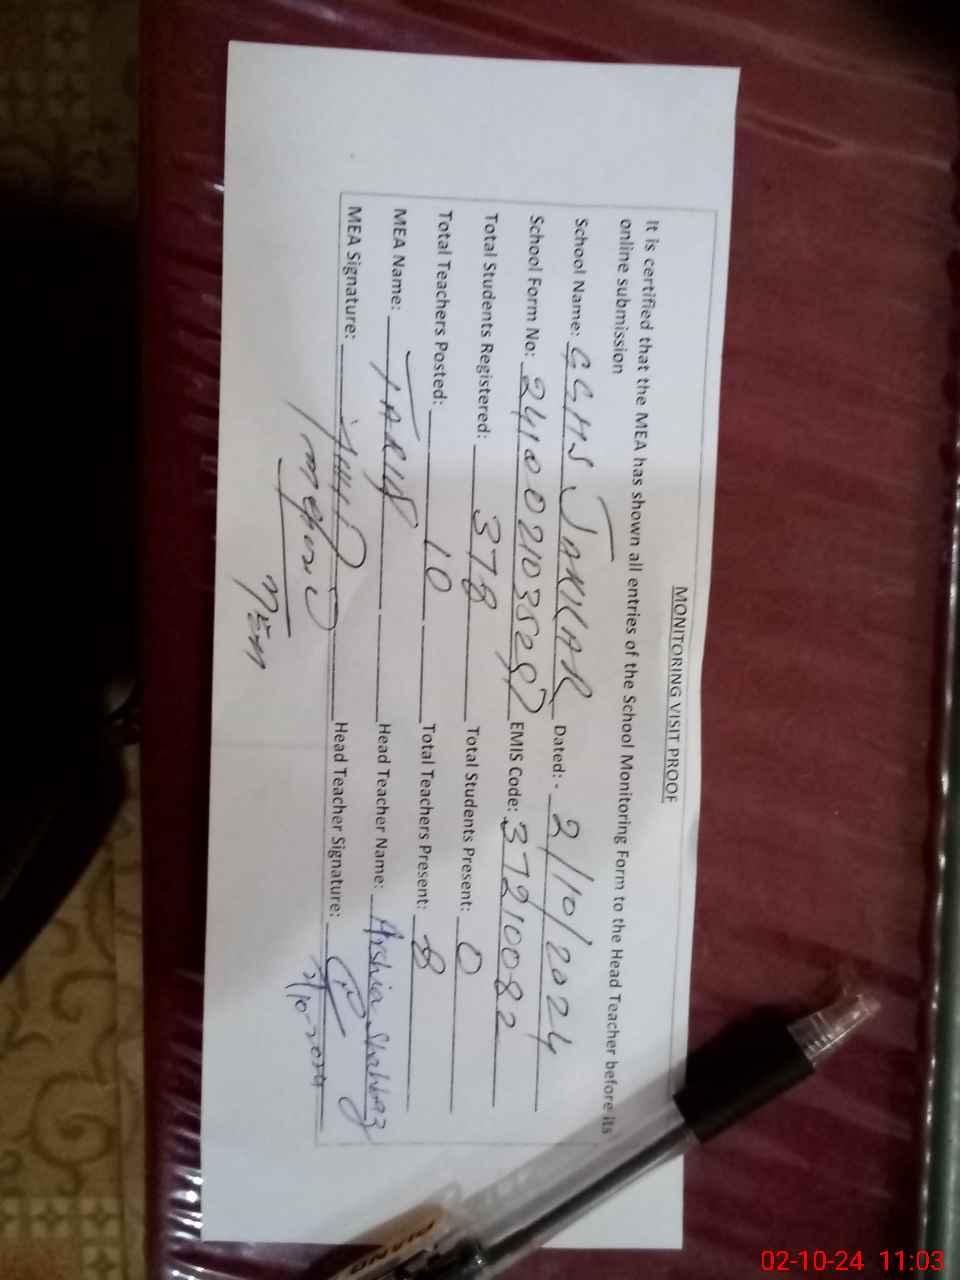 MONITORING VISIT PROOF
It is certified that the MEA has shown all entries of the School Monitoring Form to the Head Teacher before its
online submission
School Name: GGHS JAKKAR Dated: - 2/10/2024
School Form No: EMIS Code: 37210082
Total Students Registered: 378 Total Students Present: 0
Total Teachers Posted: 10 Total Teachers Present: 8
MEA Name: TARIQ Head Teacher Name: Arshia Shahbaz
MEA Signature: Head Teacher Signature:
2/10-2024
PIANO
02-10-24 11:03